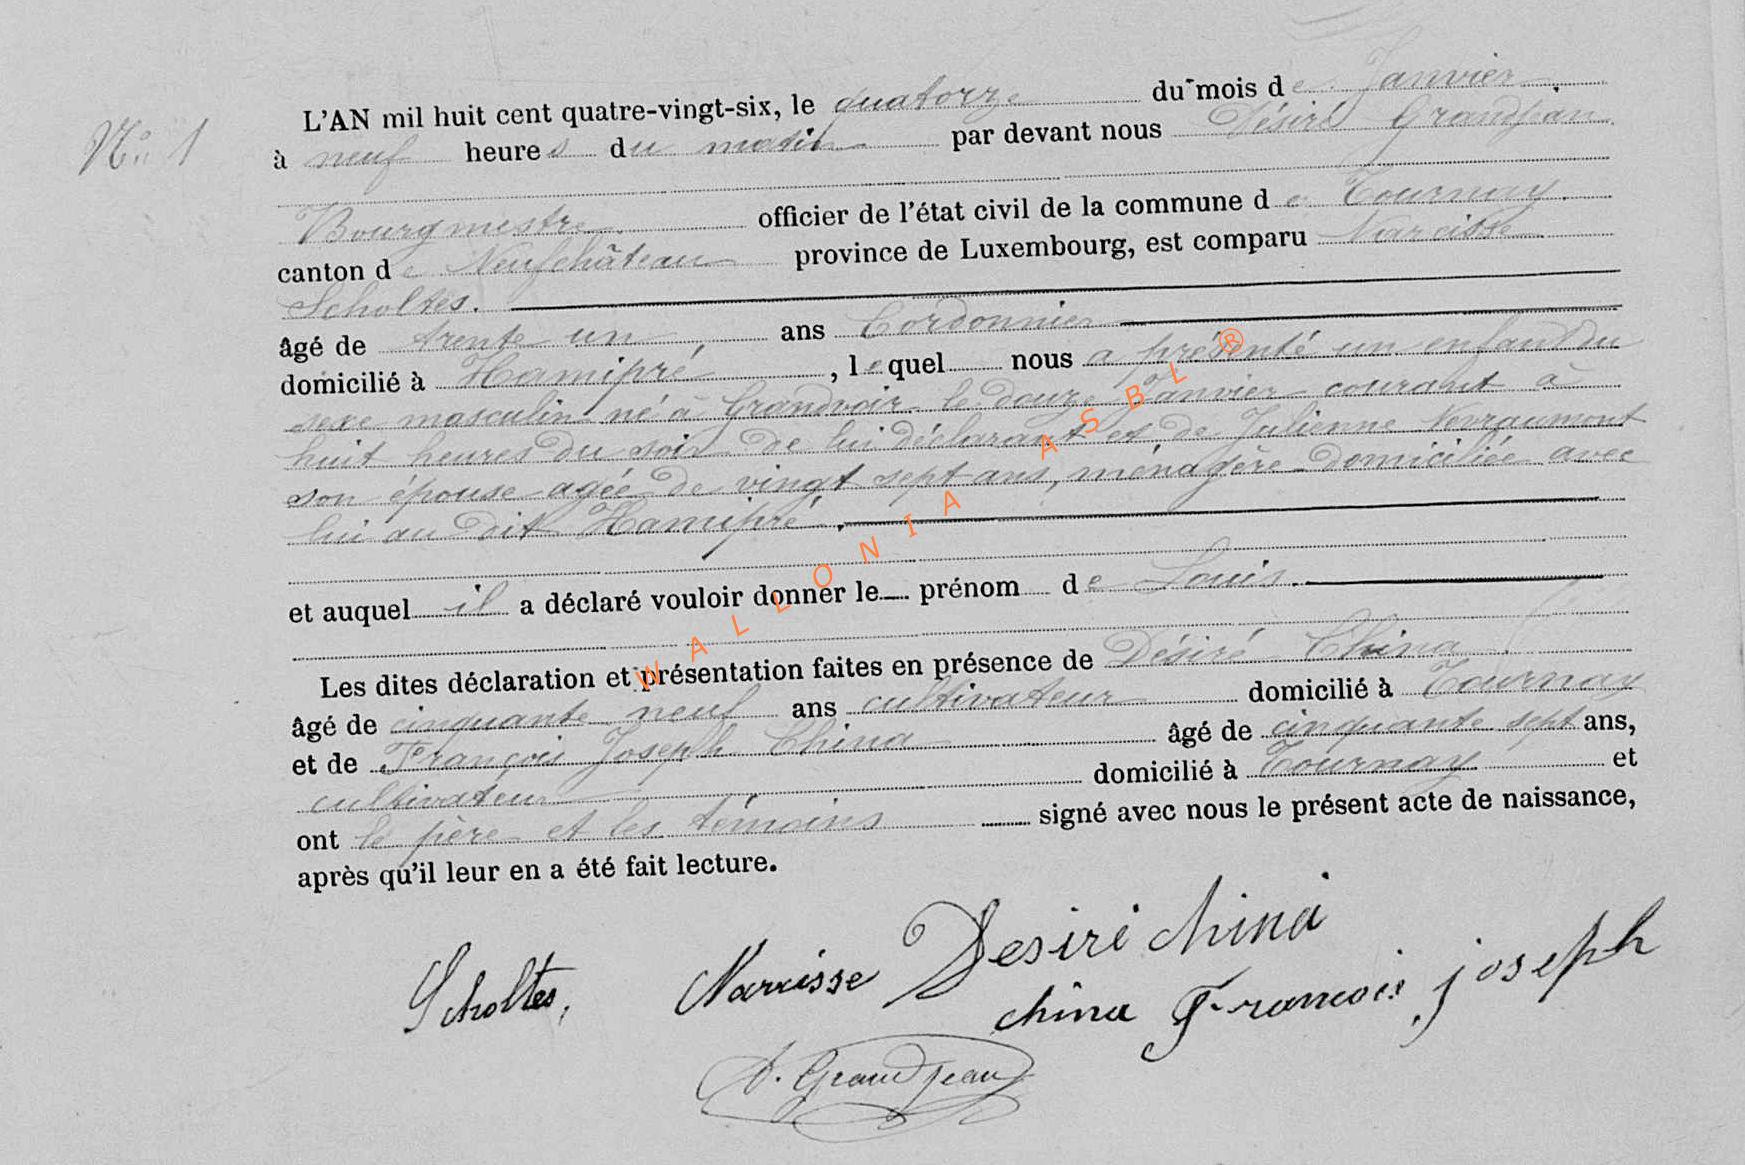 N° 1
L'AN mil huit cent quatre-vingt-six, le quatorze du mois de Janvier
à neuf heures du matin par devant nous Désiré Grandjean
Bourgmestre officier de l'état civil de la commune de Tournay
canton de Neufchâteau province de Luxembourg, est comparu Narcisse
Scholtes.
âgé de trente un ans Cordonnier
domicilié à Hamipré, lequel nous a présenté un enfant du
sexe masculin né à Grandvoir le douze Janvier courant à
huit heures du soir de lui déclarant et de Julienne Nevraumont
son épouse agée de vingt sept ans, ménagère domiciliée avec
lui au dit Hamipré.
et auquel il a déclaré vouloir donner le prénom de Louis.
Les dites déclaration et présentation faites en présence de Désiré China
âgé de cinquante neuf ans cultivateur domicilié à Tournay
et de François Joseph China âgé de cinquante sept ans,
cultivateur domicilié à Tournay et
ont le père et les témoins signé avec nous le présent acte de naissance,
après qu'il leur en a été fait lecture.
Scholtes, Narcisse Desiré China
China Francois joseph
D. Grandjean
WALLONIA ASBL ®